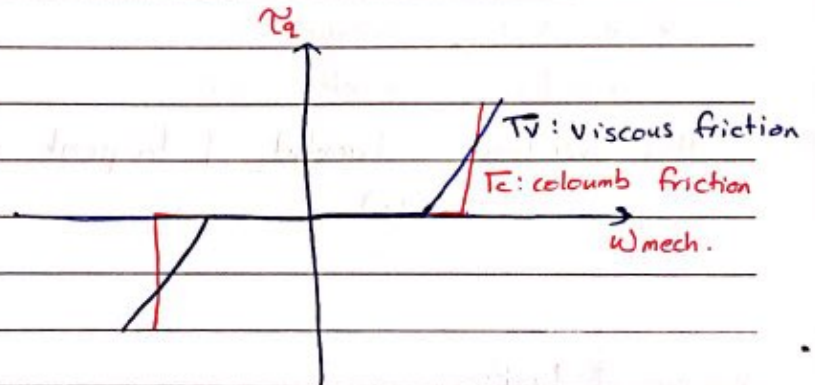 τq
Tv : viscous friction
Tc : coloumb friction
ωmech.